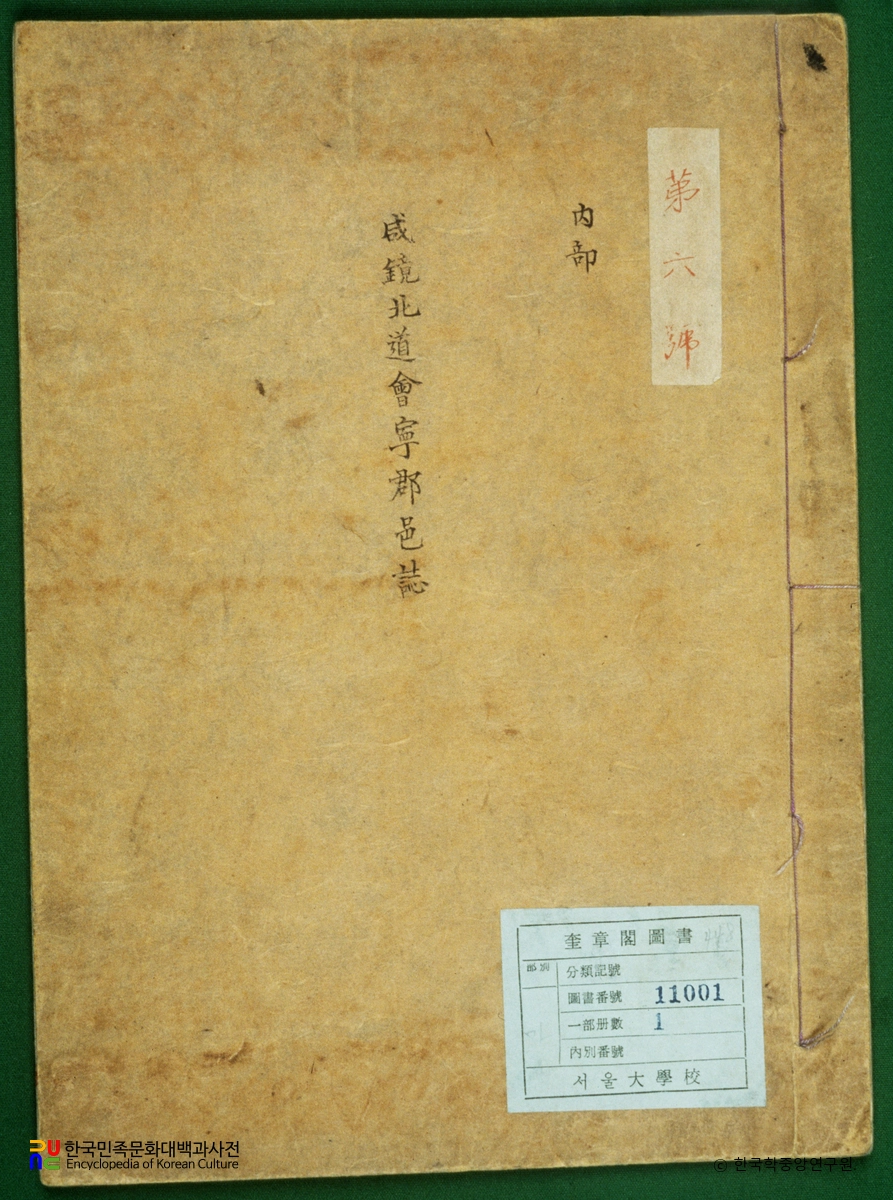 第六號
内部
咸鏡北道會寧郡邑誌
奎章閣圖書
部別
分類記號
圖書番號 11001
一部册數 1
內別番號
서울大學校
한국민족문화대백과사전
Encyclopedia of Korean Culture
© 한국학중앙연구원